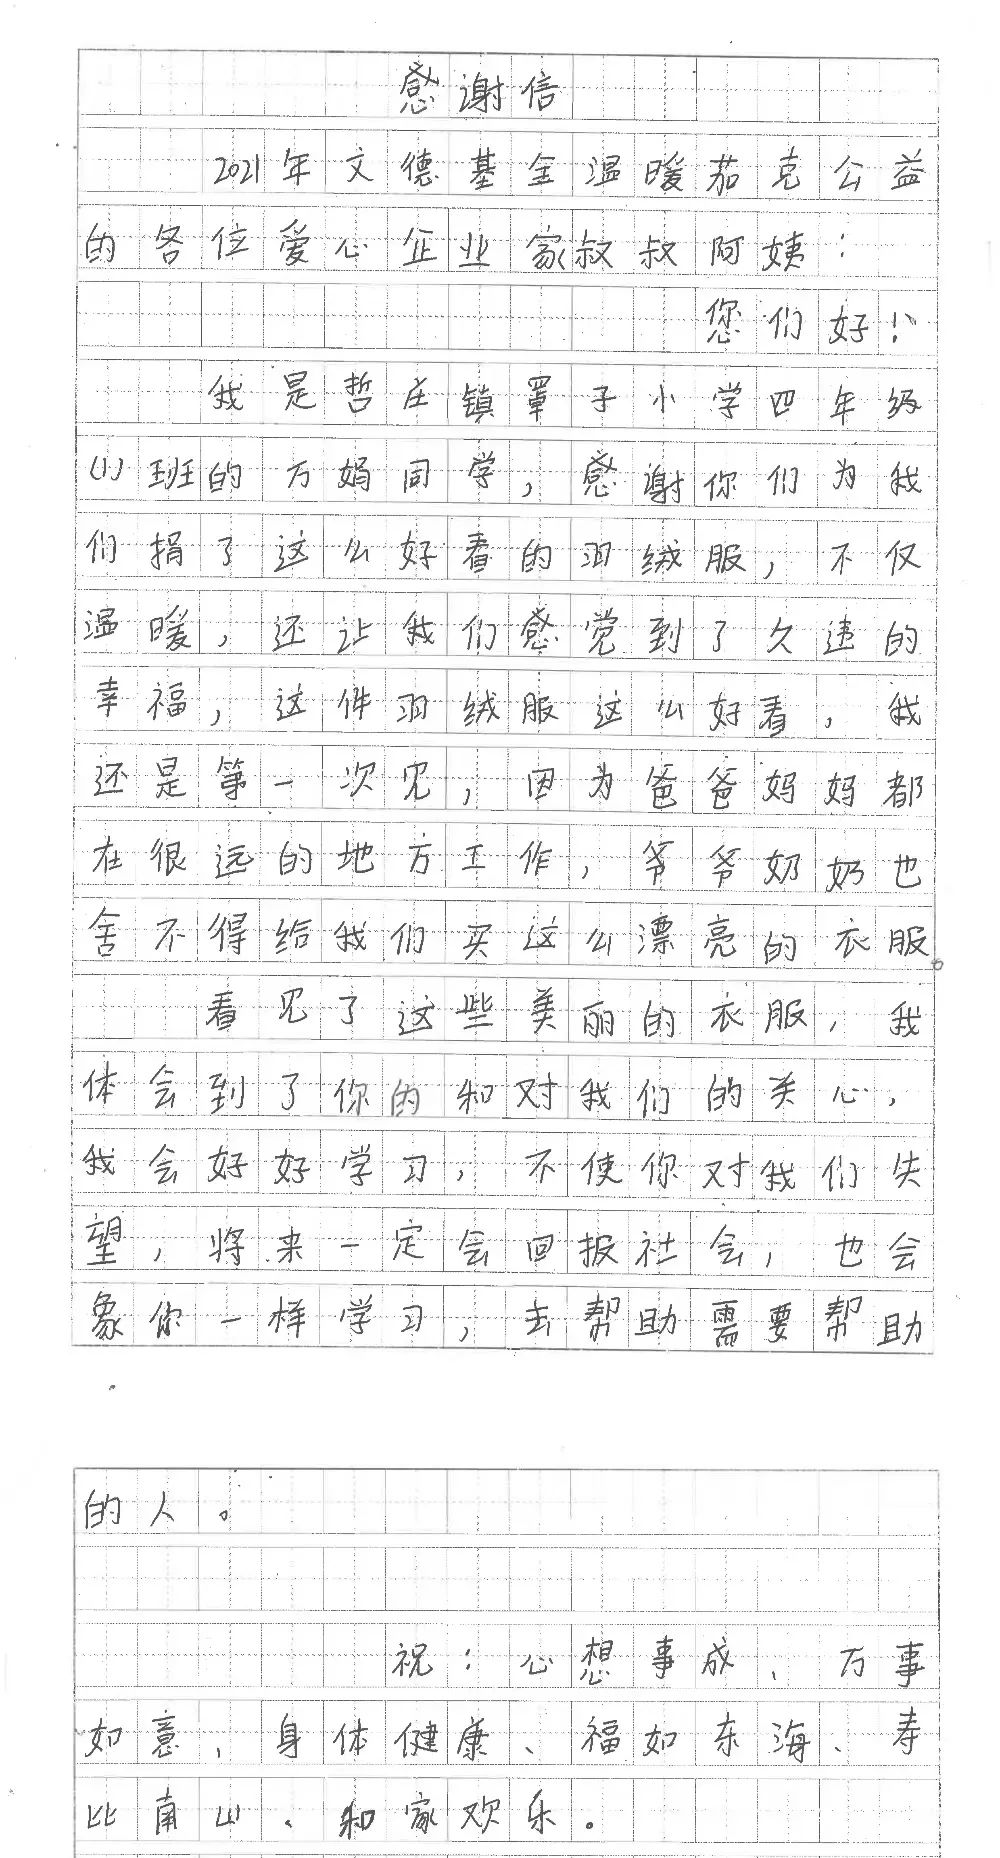 感谢信
2021年文德基金温暖茄克公益
的各位爱心企业家叔叔阿姨：
您们好！
我是哲庄镇罩子小学四年级
(1)班的万娟同学，感谢你们为我
们捐了这么好看的羽绒服，不仅
温暖，还让我们感觉到了久违的
幸福，这件羽绒服这么好看，我
还是第一次见，因为爸爸妈妈都
在很远的地方工作，爷爷奶奶也
舍不得给我们买这么漂亮的衣服。
看见了这些美丽的衣服，我
体会到了你的和对我们的关心，
我会好好学习，不使你对我们失
望，将来一定会回报社会，也会
象你一样学习，去帮助需要帮助
的人。
祝：心想事成、万事
如意、身体健康、福如东海、寿
比南山、和家欢乐。